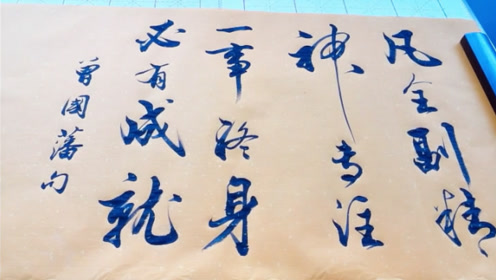 凡全副精
神专注
一事终身
必有成就
曾國藩句